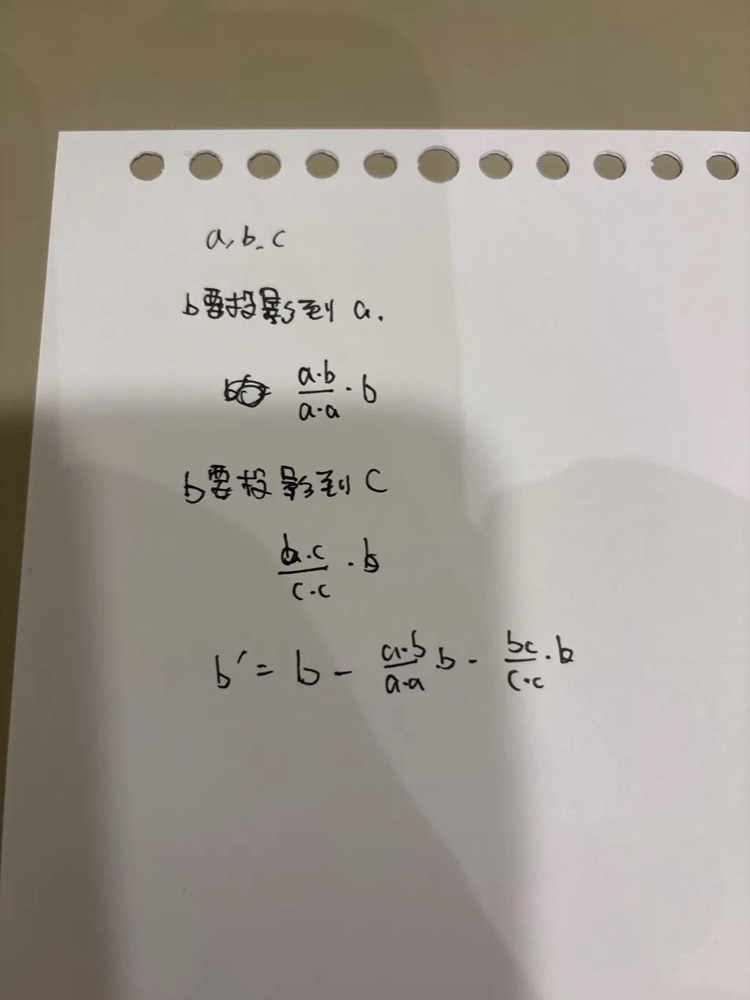 a, b, c
b要投影到 a.
a·b/a·a · b
b要投影到 c
b·c/c·c · b
b′ = b - a·b/a·a b - bc/c·c · b